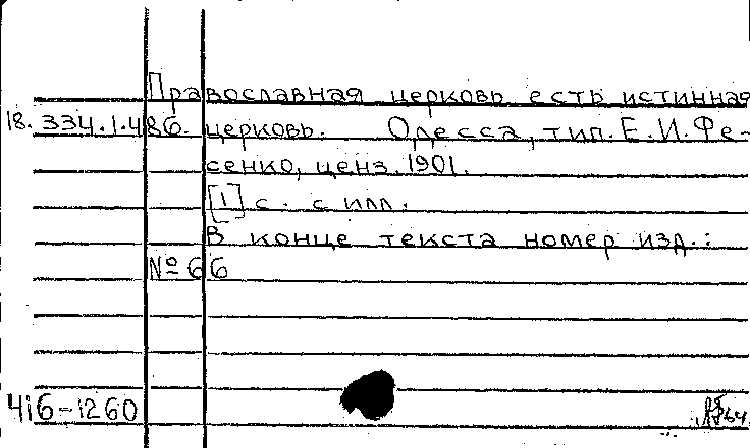 Православная церковь есть истинная
18.334.1.486. церковь. Одесса, тип. Е.И.Фе-
сенко, ценз. 1901.
[1] с. с илл.
В конце текста номер изд.:
№ 66
416-1260